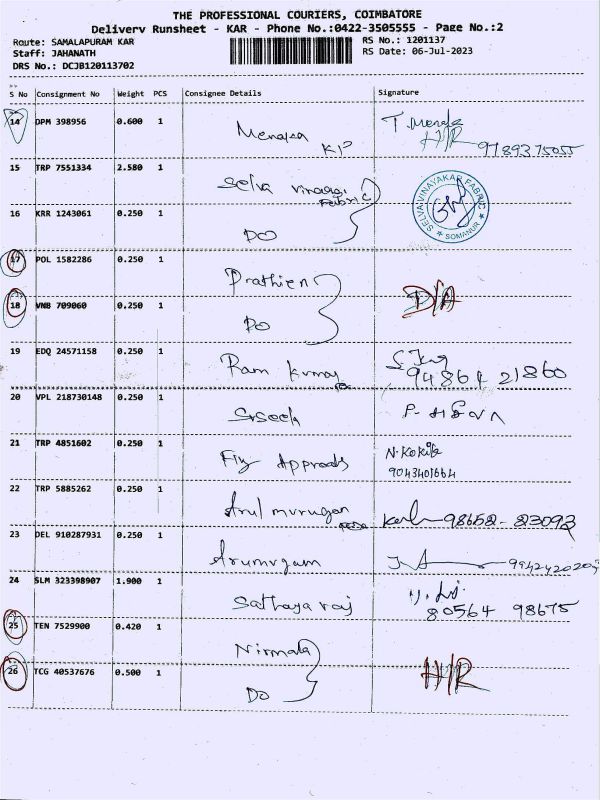 THE PROFESSIONAL COURIERS, COIMBATORE
Delivery Runsheet - KAR - Phone No.:0422-3505555 - Page No.:2
Route: SAMALAPURAM KAR
RS No.: 1201137
Staff: JAHANATH
RS Date: 06-Jul-2023
DRS No.: DCJB120113702
S No Consignment No Weight PCS Consignee Details Signature
14 DPM 398956 0.600 1 Menaka KP T. Menaka H/R
15 TRP 7551334 2.580 1 Selva Vinayagar Fabric SELVA VINAYAKAR FABRIC * SOMANUR *
16 KRR 1243061 0.250 1 DO
17 POL 1582286 0.250 1 D/A
18 VNB 709060 0.250 1 DO
19 EDQ 24571158 0.250 1 Ram Kumar 94864 21860
20 VPL 218730148 0.250 1
21 TRP 4851602 0.250 1 N. Kokila
9043401664
22 TRP 5885262 0.250 1 Arul murugan 98652-23093
23 DEL 910287931 0.250 1 Arumugam
24 SLM 323398907 1.900 1 Sathayaraj
80564 98675
25 TEN 7529900 0.420 1 Nirmala H/R
26 TCG 40537676 0.500 1 DO